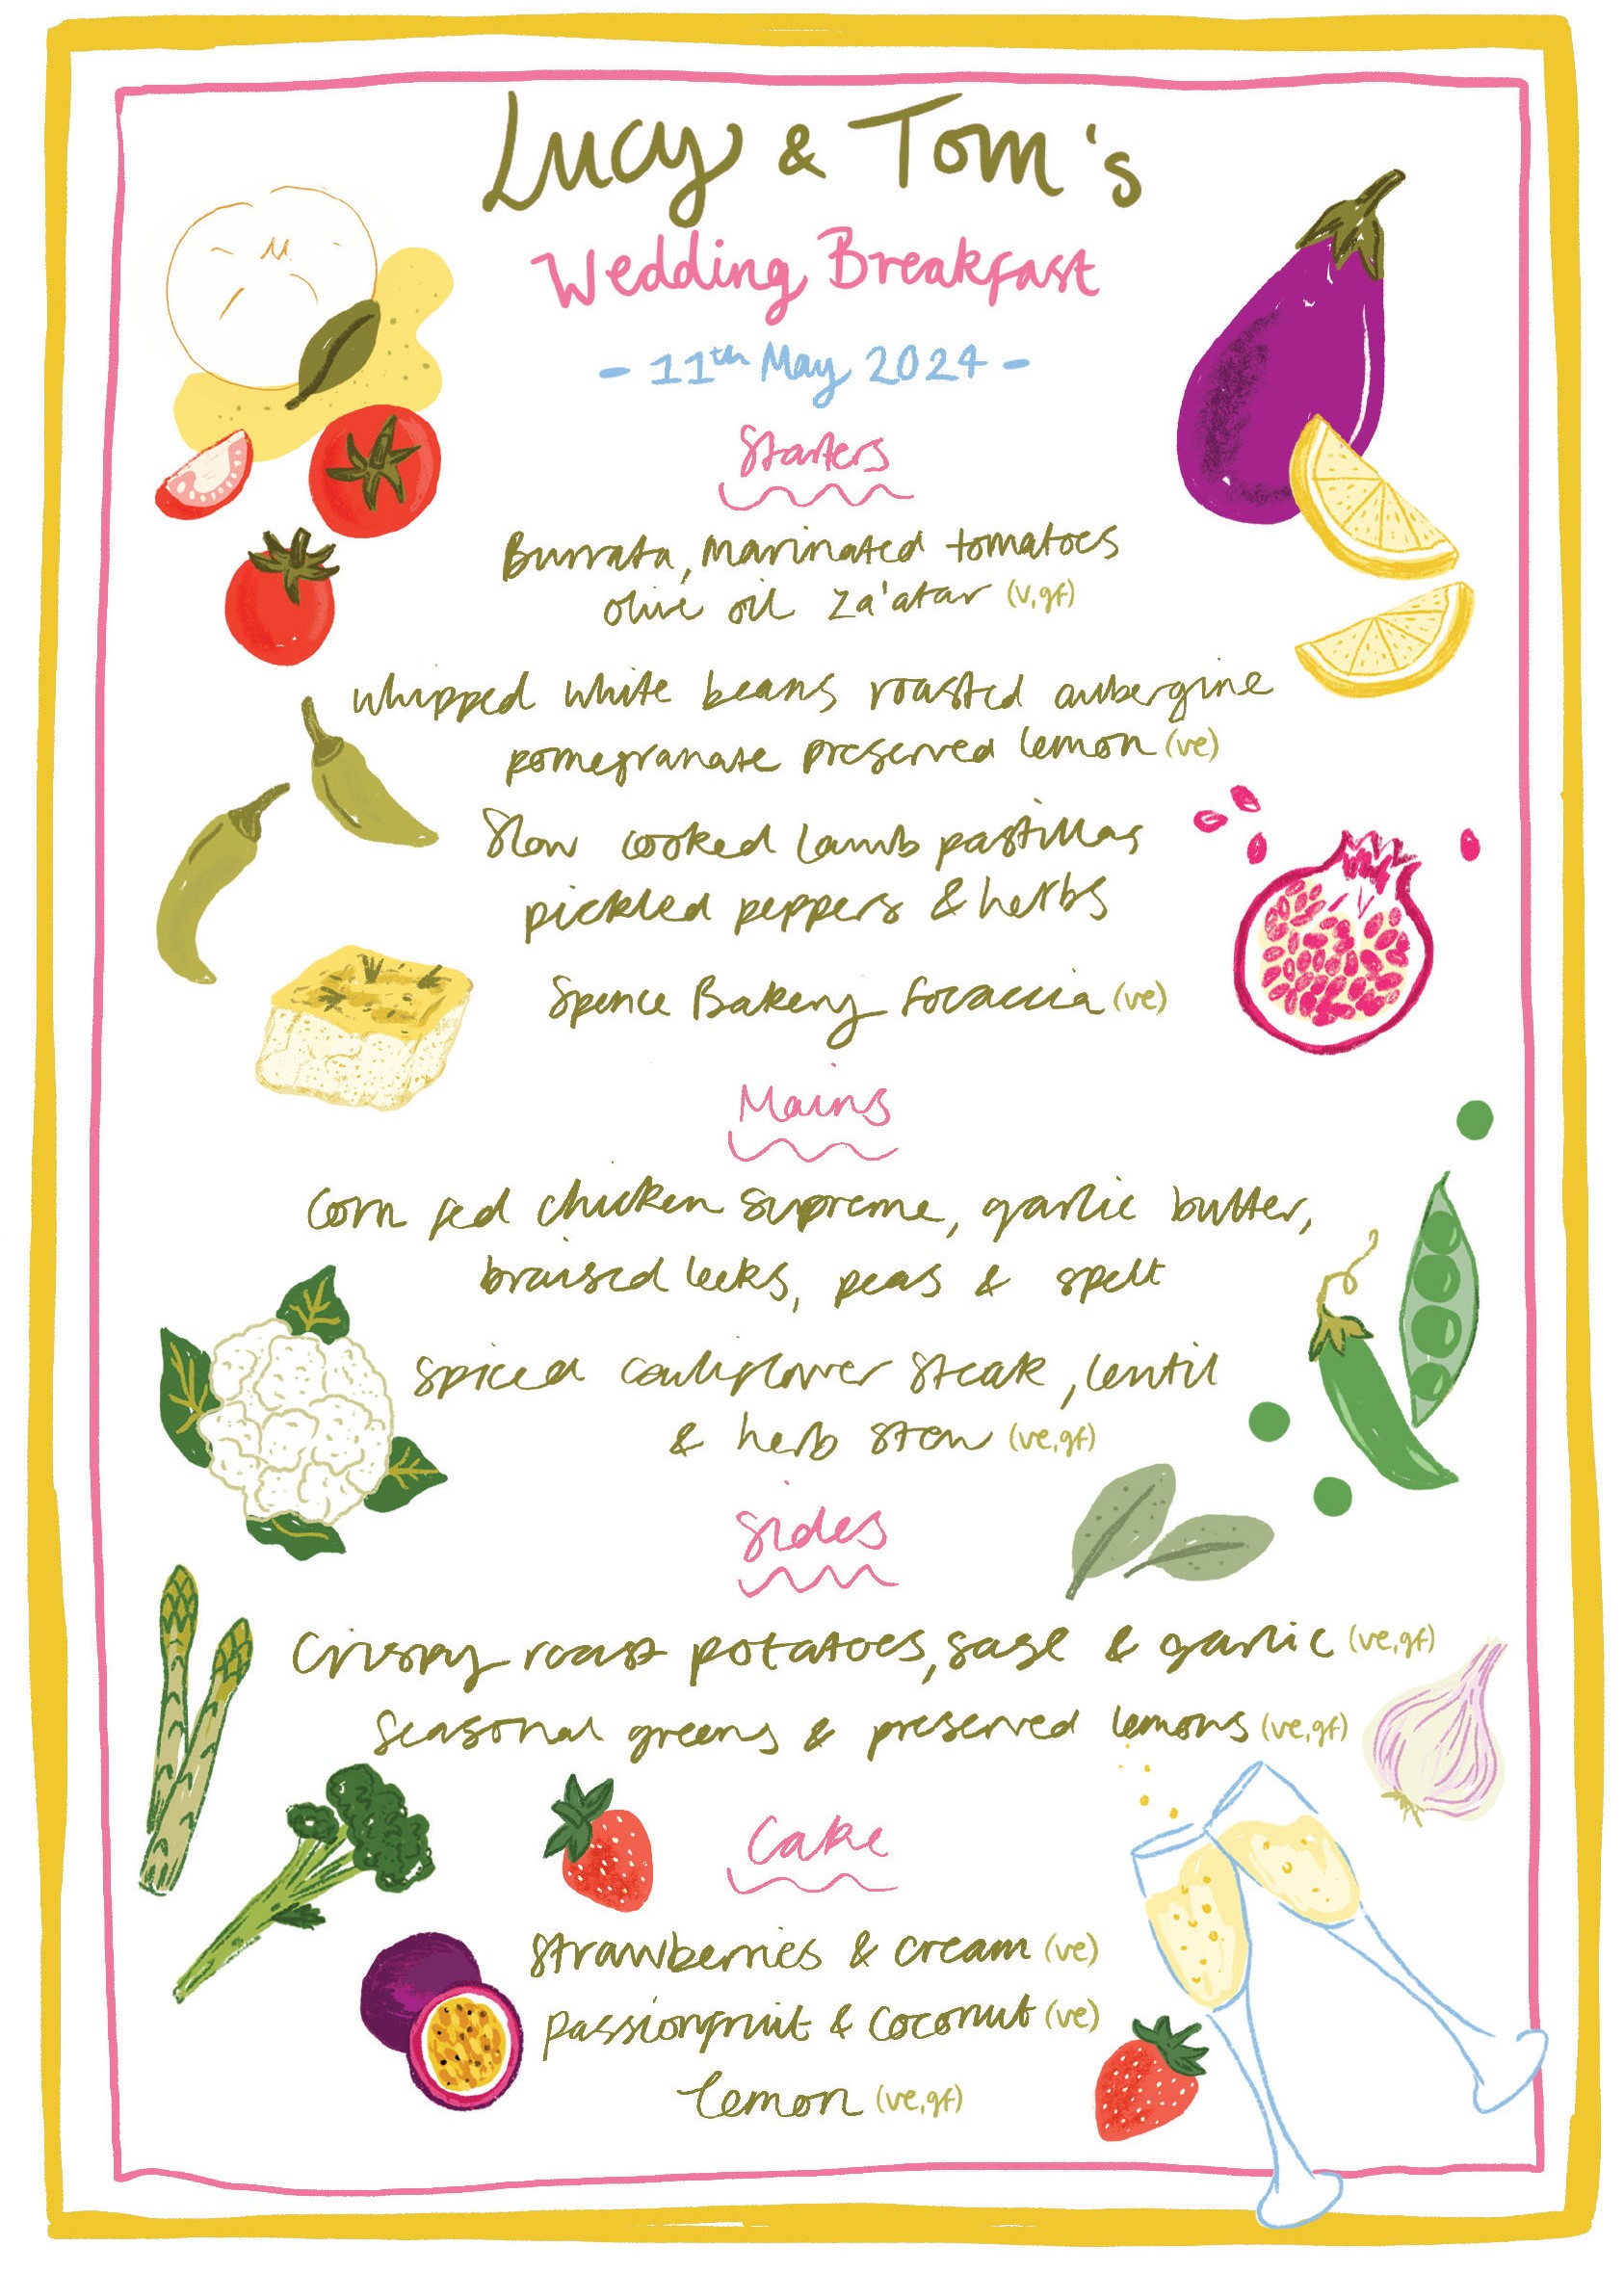 Lucy & Tom's
Wedding Breakfast
- 11th May 2024 -
Starters
Burrata, Marinated tomatoes
olive oil za'atar (v,gf)
whipped white beans roasted aubergine
pomegranate preserved lemon (ve)
Slow cooked lamb pastillas
pickled peppers & herbs
Spence Bakery focaccia (ve)
Mains
Corn fed chicken supreme, garlic butter,
braised leeks, peas & spelt
spiced cauliflower steak, lentil
& herb stew (ve,gf)
Sides
Crispy roast potatoes, sage & garlic (ve,gf)
Seasonal greens & preserved lemons (ve,gf)
Cake
Strawberries & cream (ve)
passionfruit & coconut (ve)
Lemon (ve,gf)